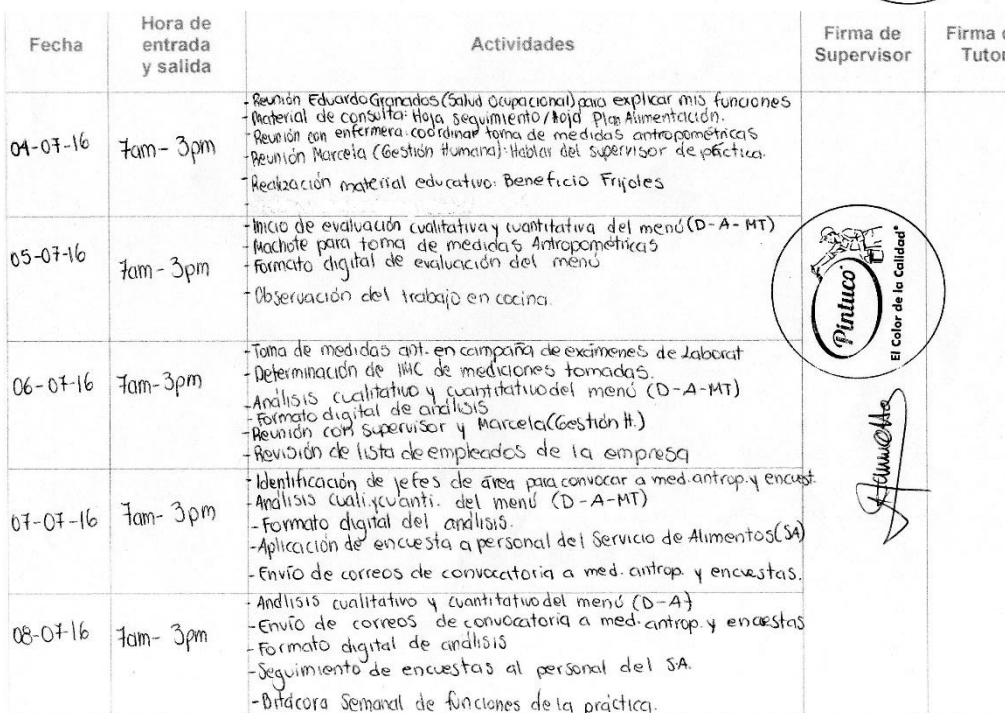 Fecha
Hora de
entrada
y salida
Actividades
Firma de
Supervisor
Firma
Tutor
04-07-16
7am - 3pm
- Reunión Eduardo Granados (Salud Ocupacional) para explicar mis funciones
- Material de consulta: Hoja seguimiento / Hoja Plan Alimentación.
- Reunión con enfermera: coordinar toma de medidas antropométricas
- Reunión Marcela (Gestión Humana): Hablar del supervisor de práctica.
- Realización material educativo: Beneficio Frijoles
05-07-16
7am - 3pm
- Inicio de evaluación cualitativa y cuantitativa del menú (D-A-MT)
- Machote para toma de medidas Antropométricas
- Formato digital de evaluación del menú
- Observación del trabajo en cocina.
Pintuco
El Color de la Calidad
06-07-16
7am - 3pm
- Toma de medidas ant. en campaña de exámenes de Laborat
- Determinación de IMC de mediciones tomadas.
- Análisis cualitativo y cuantitativo del menú (D-A-MT)
- Formato digital de análisis
- Reunión con supervisor y Marcela (Gestión H.)
- Revisión de lista de empleados de la empresa
07-07-16
7am - 3pm
- Identificación de jefes de área para convocar a med. antrop. y encuest.
- Análisis cuali. y cuanti. del menú (D-A-MT)
- Formato digital del análisis.
- Aplicación de encuesta a personal del Servicio de Alimentos (SA)
- Envío de correos de convocatoria a med. antrop. y encuestas.
08-07-16
7am - 3pm
- Análisis cualitativo y cuantitativo del menú (D-A)
- Envío de correos de convocatoria a med. antrop. y encuestas
- Formato digital de análisis
- Seguimiento de encuestas al personal del S.A.
- Bitácora Semanal de funciones de la práctica.